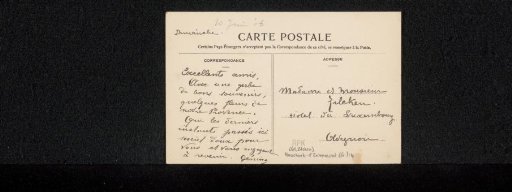 10 Juin
Dimanche.
CARTE POSTALE
Certains Pays Étrangers n'acceptent pas la Correspondance de ce côté, se renseigner à la Poste.
CORRESPONDANCE
ADRESSE
Excellents amis,
Avec une gerbe
de bons souvenirs,
quelques fleurs de
notre Provence.
Que les derniers
instants passés ici
soient doux pour
vous et vous engagent
à revenir.
Madame et Monsieur
Zilcken
Hotel du Luxembourg